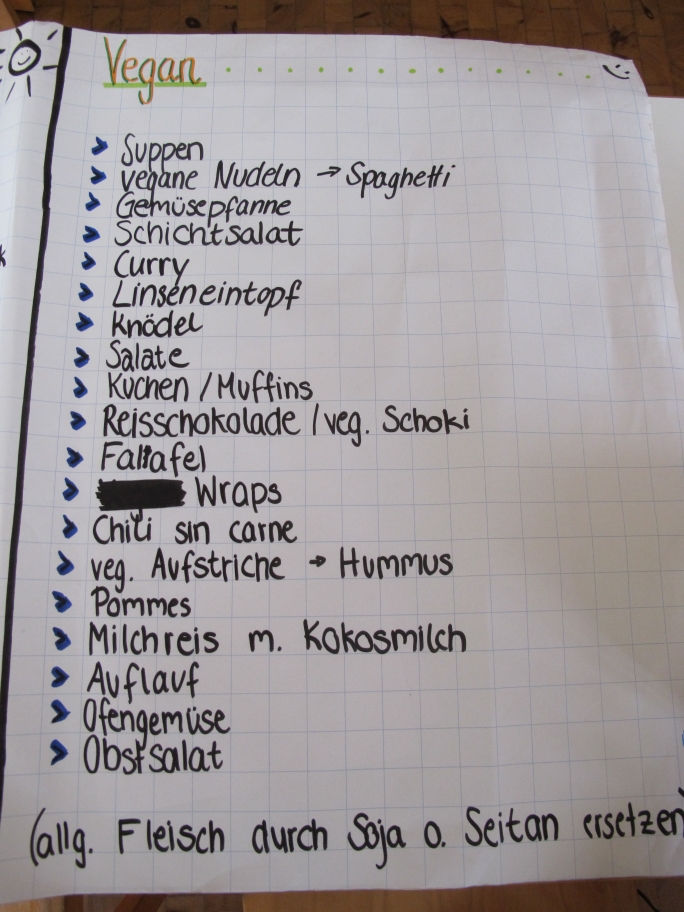 Vegan
Suppen
vegane Nudeln → Spaghetti
Gemüsepfanne
Schichtsalat
Curry
Linseneintopf
Knödel
Salate
Kuchen / Muffins
Reisschokolade / veg. Schoki
Fallafel
Wraps
Chili sin carne
veg. Aufstriche → Hummus
Pommes
Milchreis m. Kokosmilch
Auflauf
Ofengemüse
Obstsalat
(allg. Fleisch durch Soja o. Seitan ersetzen)